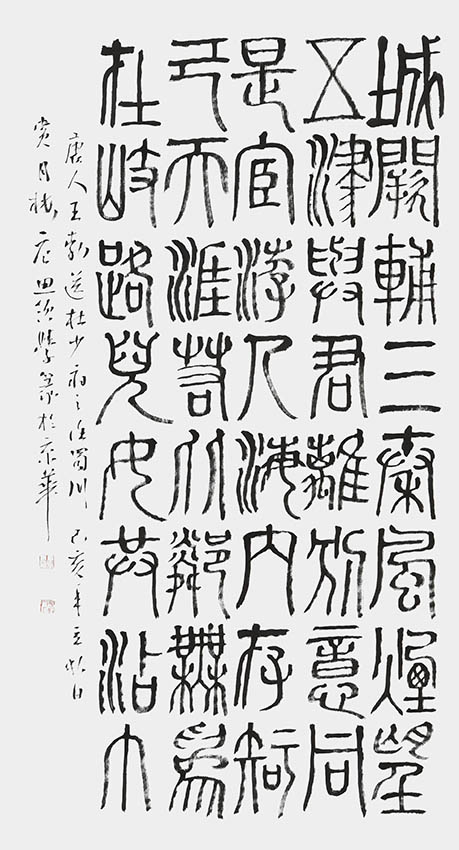 城闕輔三秦風煙望
五津與君離別意同
是宦游人海內存知
己天涯若比鄰無爲
在岐路兒女共沾巾
唐人王勃送杜少府之任蜀川 己亥年立秋日
賞月 篆於京華